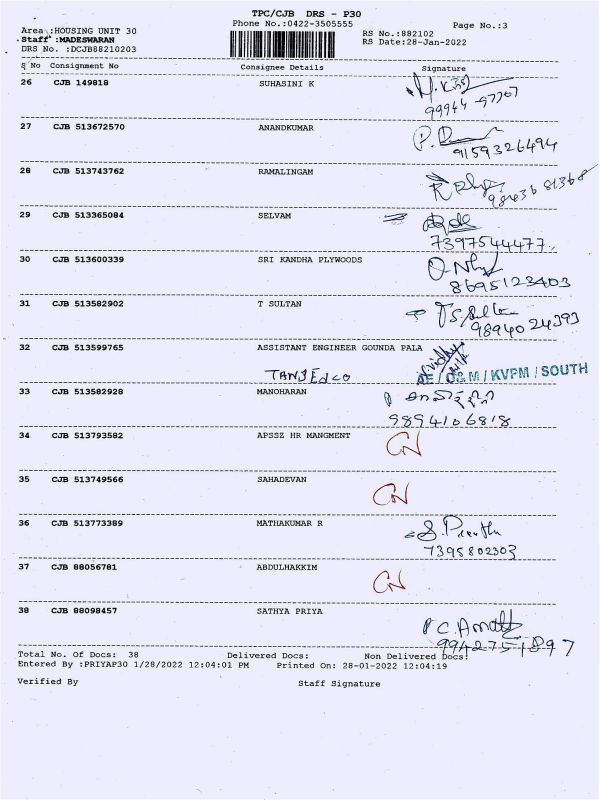 TPC/CJB DRS - P30
Phone No.:0422-3505555 Page No.:3
Area :HOUSING UNIT 30 RS No.:882102
Staff :MADESWARAN RS Date:28-Jan-2022
DRS No. :DCJB88210203
S No Consignment No Consignee Details Signature
26 CJB 149818 SUHASINI K
99944 -97707
27 CJB 513672570 ANANDKUMAR
9159326494
28 CJB 513743762 RAMALINGAM
29 CJB 513365084 SELVAM
7397544477
30 CJB 513600339 SRI KANDHA PLYWOODS
8695123403
31 CJB 513582902 T SULTAN
9894024393
32 CJB 513599765 ASSISTANT ENGINEER GOUNDA PALA
TANJEdCO AE / O&M / KVPM / SOUTH
33 CJB 513582928 MANOHARAN
9894106818
34 CJB 513793582 APSSZ HR MANGMENT CN
35 CJB 513749566 SAHADEVAN CN
36 CJB 513773389 MATHAKUMAR R
7395802303
37 CJB 88056781 ABDULHAKKIM CN
38 CJB 88098457 SATHYA PRIYA
9942751897
Total No. Of Docs: 38 Delivered Docs: Non Delivered Docs:
Entered By :PRIYAP30 1/28/2022 12:04:01 PM Printed On: 28-01-2022 12:04:19
Verified By Staff Signature